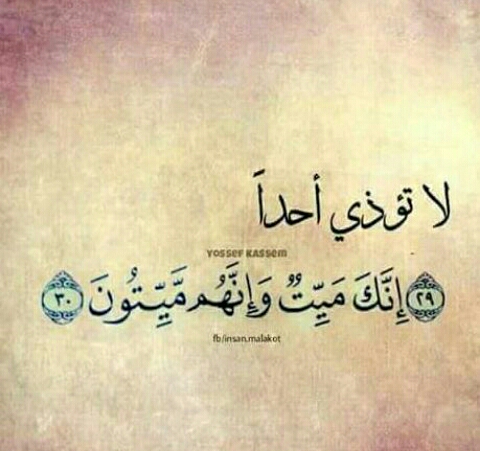 لا تؤذي أحداً
YOSSEF KASSEM
﴿٢٩﴾ إِنَّكَ مَيِّتٌ وَإِنَّهُم مَّيِّتُونَ ﴿٣٠﴾
fb/insan.malakot